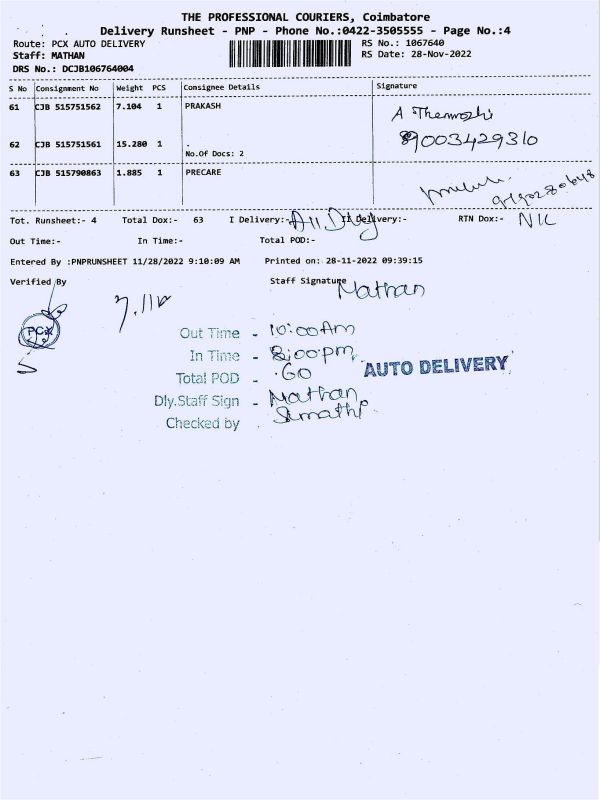 THE PROFESSIONAL COURIERS, Coimbatore
Delivery Runsheet - PNP - Phone No.:0422-3505555 - Page No.:4
Route: PCX AUTO DELIVERY RS No.: 1067640
Staff: MATHAN RS Date: 28-Nov-2022
DRS No.: DCJB106764004
S No Consignment No Weight PCS Consignee Details Signature
61 CJB 515751562 7.104 1 PRAKASH
62 CJB 515751561 15.280 1 .
89003429310
No.Of Docs: 2
63 CJB 515790863 1.885 1 PRECARE
Tot. Runsheet:- 4 Total Dox:- 63 I Delivery:- All Dly II Delivery:- RTN Dox:- NIL
Out Time:- In Time:- Total POD:-
Entered By :PNPRUNSHEET 11/28/2022 9:10:09 AM Printed on: 28-11-2022 09:39:15
Verified By Staff Signature Mathan
PCX
Out Time - 10:00Am
In Time - 8:00pm
Total POD - 60
AUTO DELIVERY
Dly.Staff Sign - Mathan
Checked by